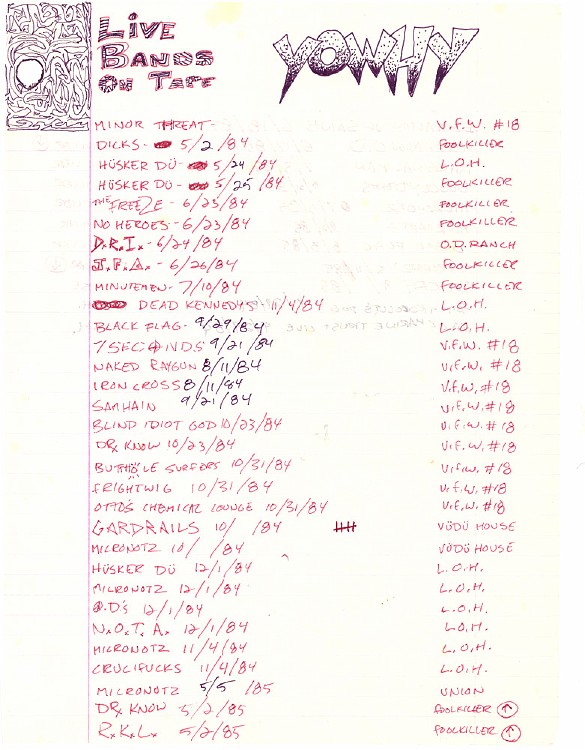 LIVE
BANDS
ON TAPE
YOWHY
MINOR THREAT- V.F.W. #18
DICKS- 5/2/84 FOOLKILLER
HÜSKER DÜ- 5/24/84 L.O.H.
HÜSKER DÜ- 5/25/84 FOOLKILLER
THE FREEZE- 6/23/84 FOOLKILLER
NO HEROES- 6/23/84 FOOLKILLER
D.R.I.- 6/24/84 O.D. RANCH
J.F.A.- 6/26/84 FOOLKILLER
MINUTEMEN- 7/10/84 FOOLKILLER
DEAD KENNEDYS 11/4/84 L.O.H.
BLACK FLAG- 9/29/84 L.O.H.
7 SECONDS 9/21/84 V.F.W. #18
NAKED RAYGUN 8/11/84 V.F.W. #18
IRON CROSS 8/11/84 V.F.W. #18
SAMHAIN 9/21/84 V.F.W. #18
BLIND IDIOT GOD 10/23/84 V.F.W. #18
DR. KNOW 10/23/84 V.F.W. #18
BUTTHOLE SURFERS 10/31/84 V.F.W. #18
FRIGHTWIG 10/31/84 V.F.W. #18
OTTO'S CHEMICAL LOUNGE 10/31/84 V.F.W. #18
GARDRAILS 10/ /84 VÜDÜ HOUSE
MICRONOTZ 10/ /84 VÜDÜ HOUSE
HÜSKER DÜ 12/1/84 L.O.H.
MICRONOTZ 12/1/84 L.O.H.
12/1/84 L.O.H.
N.O.T.A. 12/1/84 L.O.H.
MICRONOTZ 11/4/84 L.O.H.
CRUCIFUCKS 11/4/84 L.O.H.
MICRONOTZ 5/5/85 UNION
DR. KNOW 5/2/85 FOOLKILLER
R.K.L. 5/2/85 FOOLKILLER